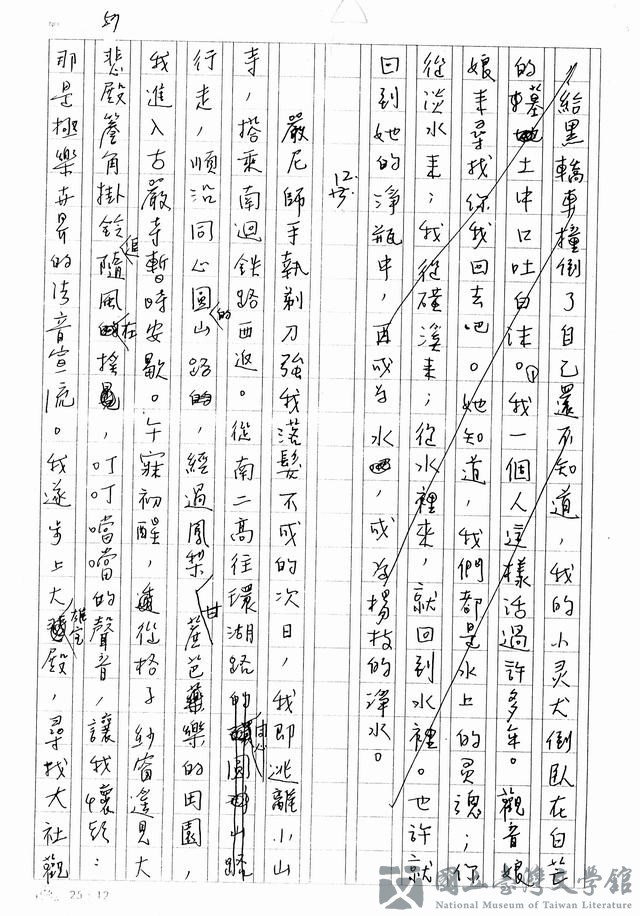 59
給黑轎車撞倒了自己還不知道，我的小灵犬倒臥在白芒
的墓土中口吐白沫。我一個人這樣活過許多年。觀音娘
娘來尋找你我回去吧。她知道，我們都是水上的灵魂；你
從淡水來；我從磺溪來；從水裡來，就回到水裡。也許就
回到她的淨瓶中，再成為水，成為楊枝的淨水。
12.
嚴尼師手執剃刀強我落髮不成的次日，我即逃離小山
寺，搭乘南迴鉄路西返。從南二高往環湖路的同心圓山路
行走，順沿同心圓的山路，經過鳳梨甘蔗芭樂的田園，
我進入古嚴寺暫時安歇。午寐初醒，從格子紗窗遙見大
悲殿簷角掛鈴隨風在搖，叮叮噹噹的聲音，讓我懷疑：
那是極樂世界的法音宣流。我遂步上大雄宝殿，尋找大社觀
25×12
國立臺灣文學館
National Museum of Taiwan Literature